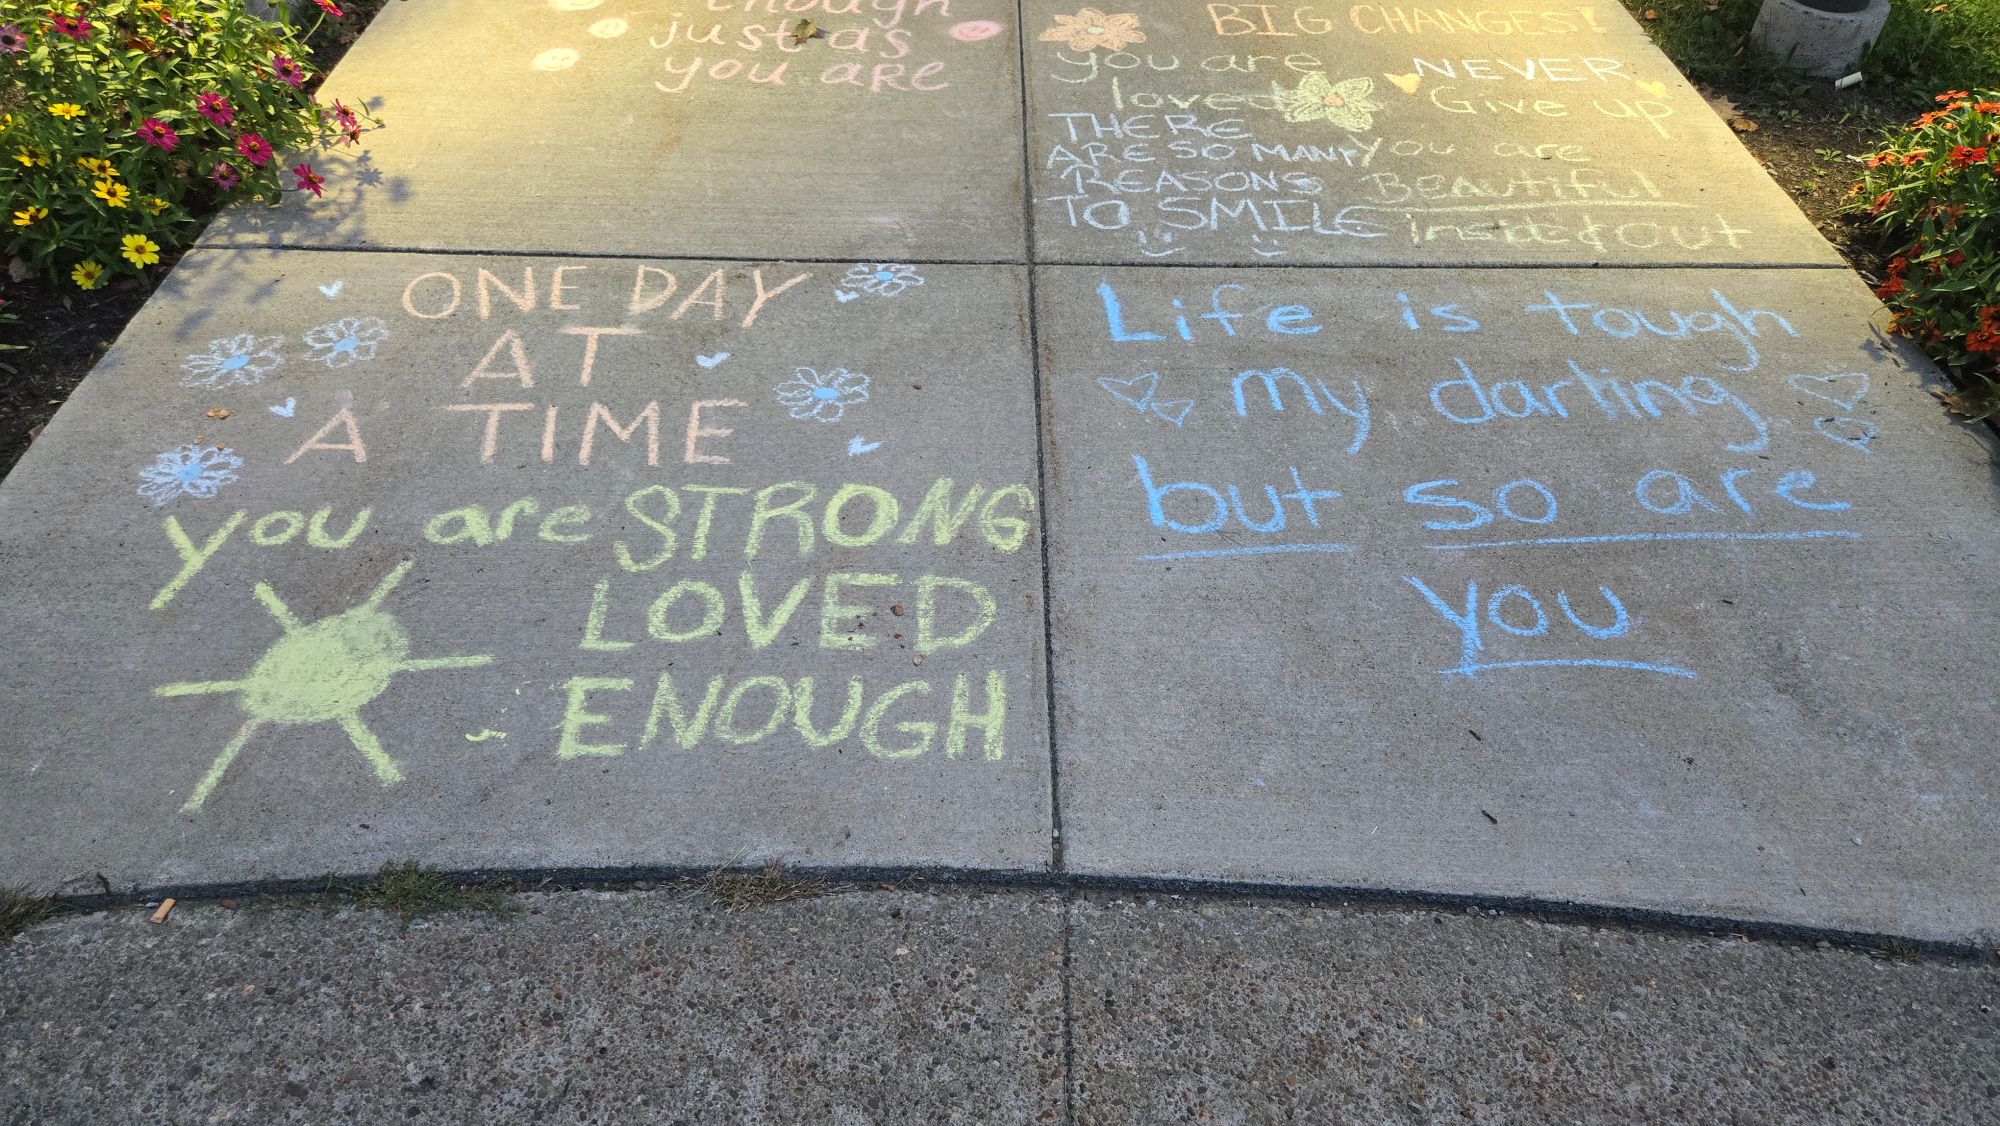 enough
just as
you are
BIG CHANGES!
you are
loved
NEVER
Give up
THERE
ARE SO MANY
REASONS
TO SMILE
You are
Beautiful
inside & Out
ONE DAY
AT
A TIME
you are STRONG
LOVED
ENOUGH
Life is tough
my darling
but so are
you